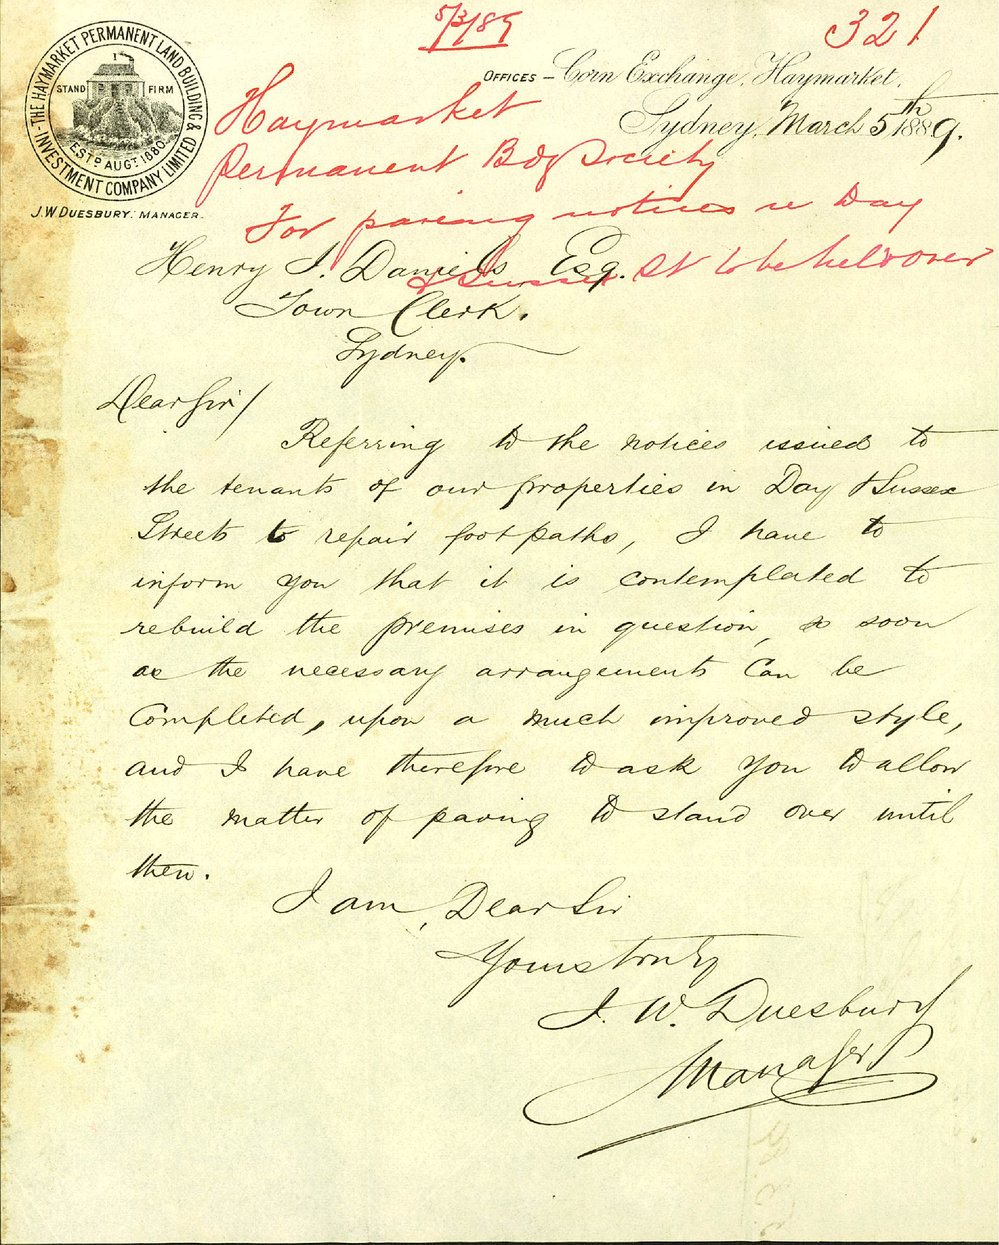 5/3/89
321
THE HAYMARKET PERMANENT LAND BUILDING & INVESTMENT COMPANY LIMITED
STAND FIRM
ESTD AUGT 1880
J. W. DUESBURY. MANAGER.
OFFICES – Corn Exchange, Haymarket.
Sydney, March 5th 1889.
Haymarket
Permanent Bdg Society
For paving notices re Day
& Sussex St to be held over
Henry J. Daniels Esq.
Town Clerk.
Sydney.
Dear Sir/
Referring to the notices issued to
the tenants of our properties in Day & Sussex
Streets to repair footpaths, I have to
inform you that it is contemplated to
rebuild the premises in question, so soon
as the necessary arrangements can be
completed, upon a much improved style,
and I have therefore to ask you to allow
the matter of paving to stand over until
then.
I am, Dear Sir
Yours truly
J. W. Duesbury
Manager